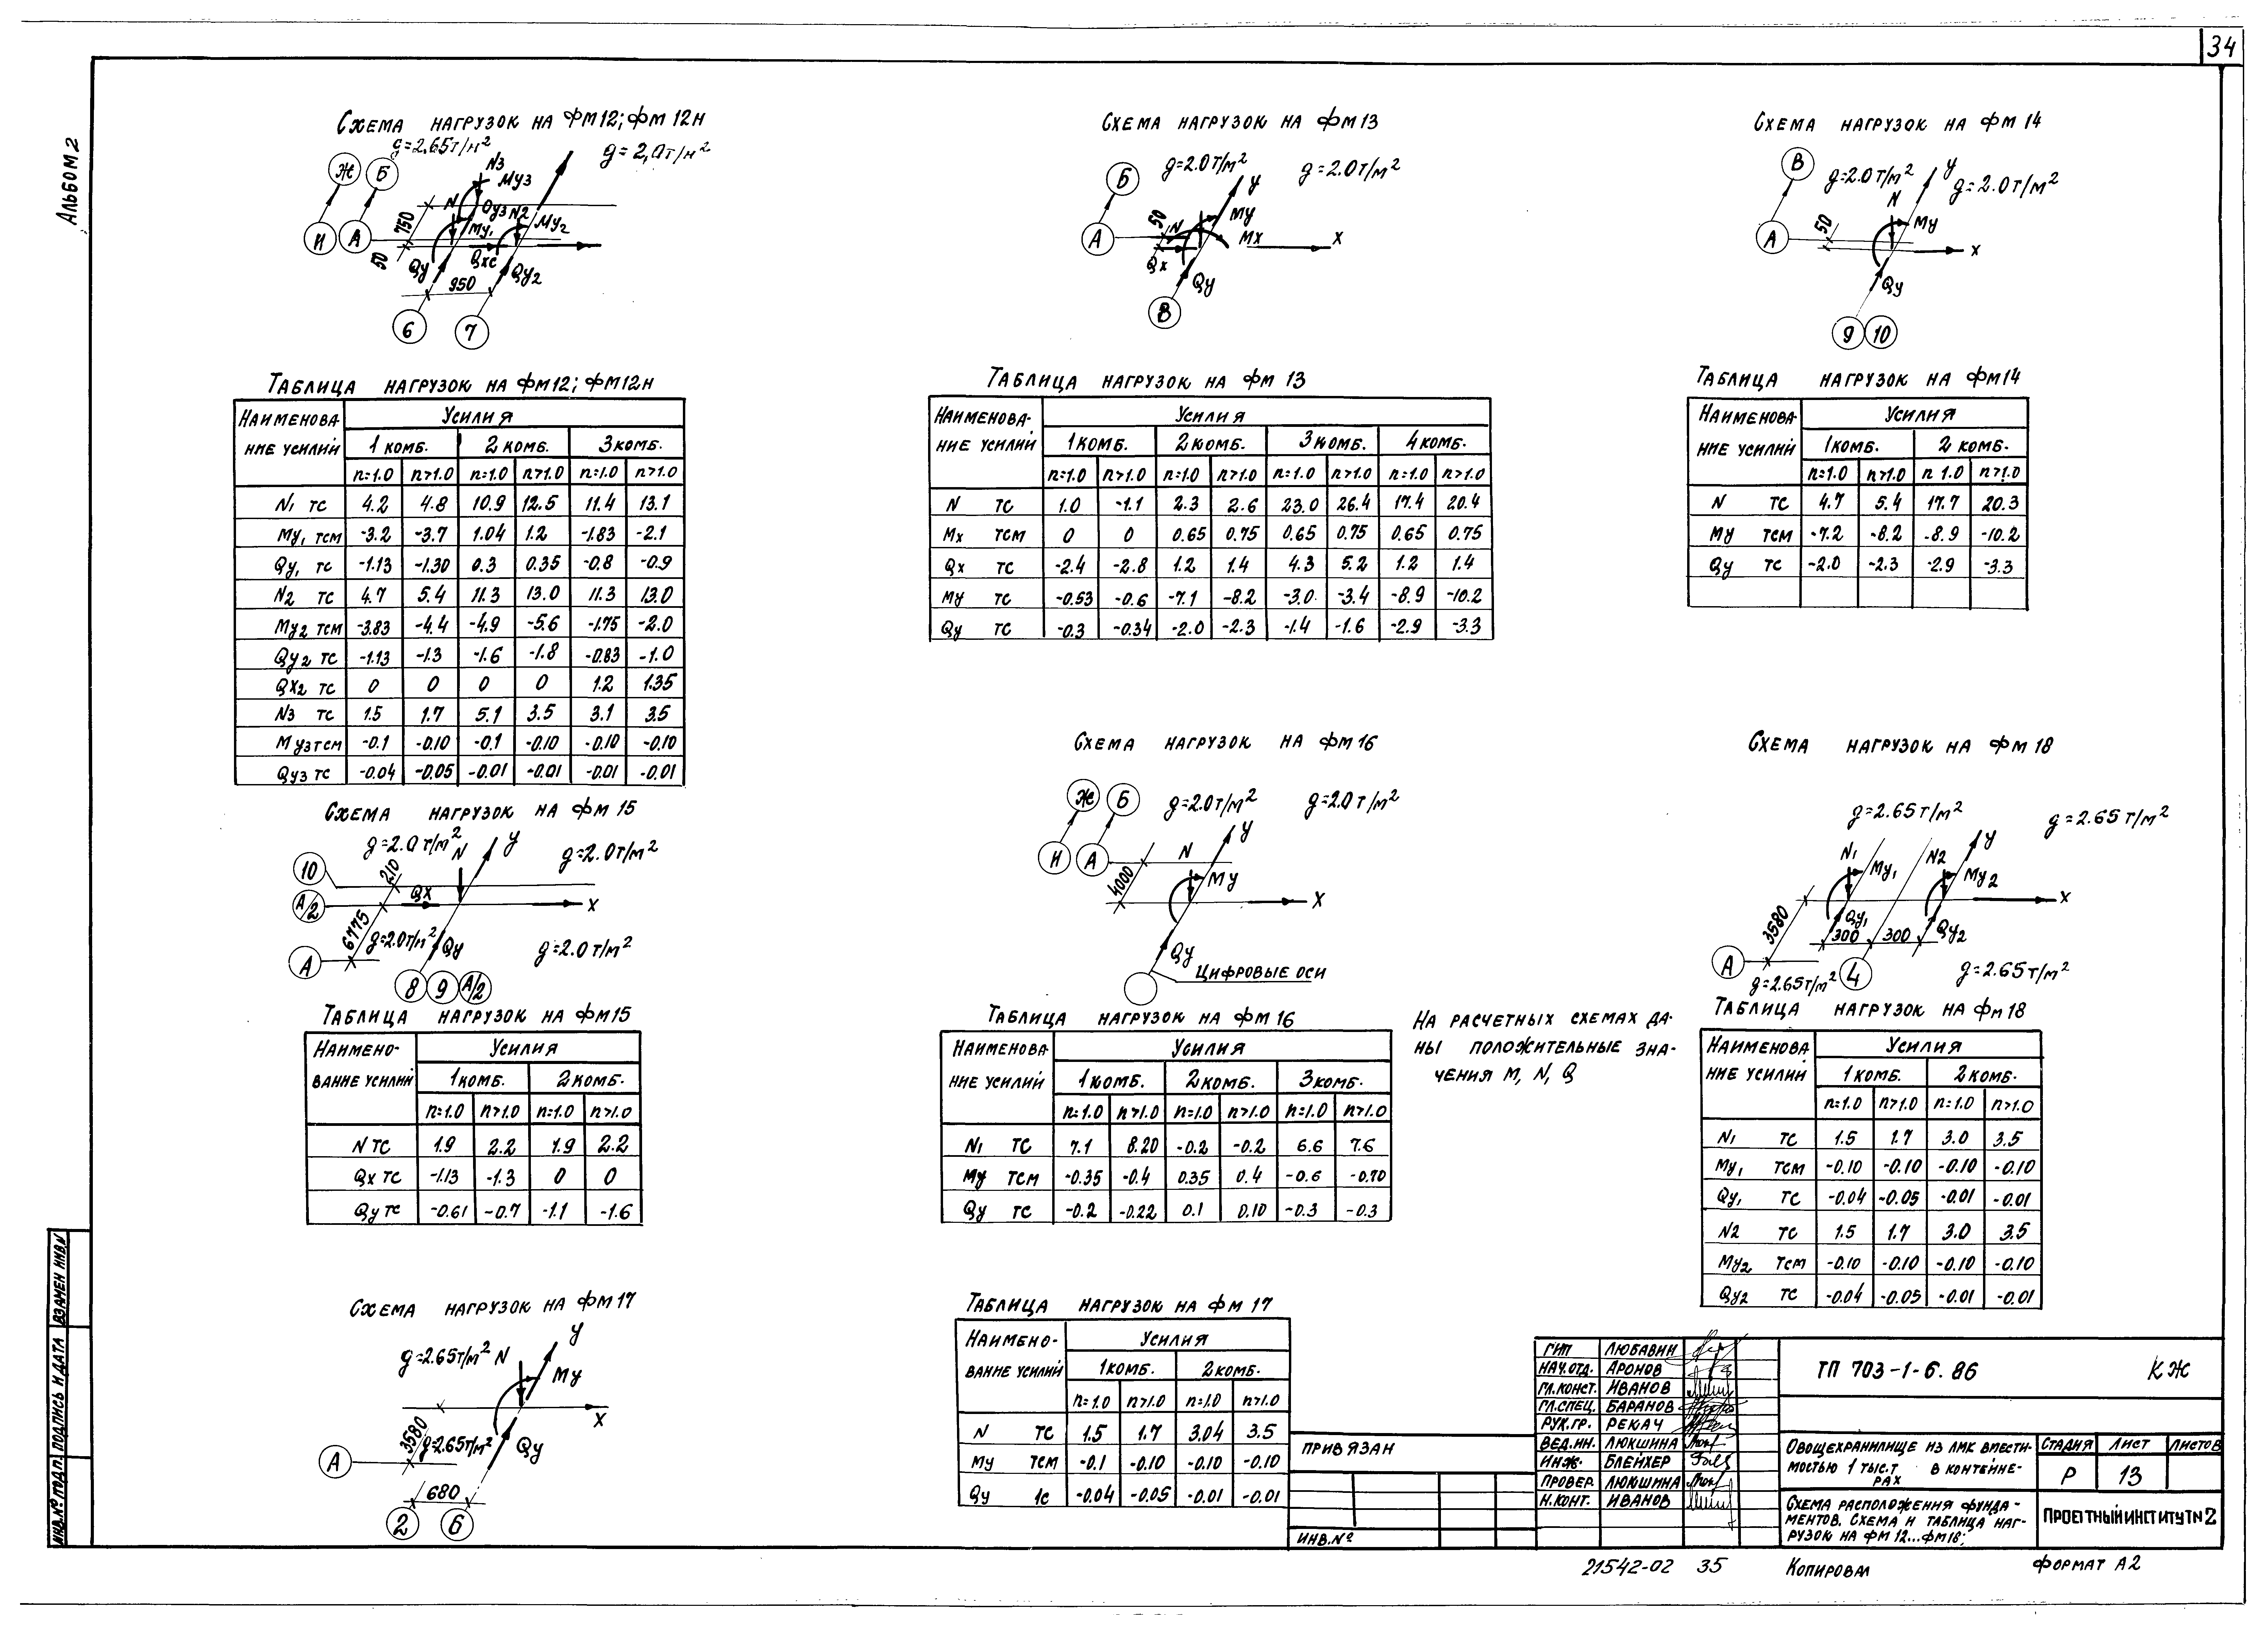 34
Альбом 2
Схема нагрузок на ФМ12; ФМ12н
g=2,65т/м²
g=2,0т/м²
Ж Б
И А
N3
Му3
N
Qу3 N2
Му1 Му2
750
50
Qу Qхс Qу2
950
6 7
Таблица нагрузок на ФМ12; ФМ12н
Наименова-ние усилий Усилия
1 комб. 2 комб. 3 комб.
n=1.0 n>1.0 n=1.0 n>1.0 n=1.0 n>1.0
N1 тс 4.2 4.8 10.9 12.5 11.4 13.1
Му1 тсм -3.2 -3.7 1.04 1.2 -1.83 -2.1
Qу1 тс -1.13 -1.30 0.3 0.35 -0.8 -0.9
N2 тс 4.7 5.4 11.3 13.0 11.3 13.0
Му2 тсм -3.83 -4.4 -4.9 -5.6 -1.75 -2.0
Qу2 тс -1.13 -1.3 -1.6 -1.8 -0.83 -1.0
Qх2 тс 0 0 0 0 1.2 1.35
N3 тс 1.5 1.7 5.1 3.5 3.1 3.5
Му3 тсм -0.1 -0.10 -0.1 -0.10 -0.10 -0.10
Qу3 тс -0.04 -0.05 -0.01 -0.01 -0.01 -0.01
Схема нагрузок на ФМ13
g=2.0т/м² g=2.0т/м²
Б
А
50
N
У
Му
Мх
Х
Qх
Qу
В
Таблица нагрузок на ФМ 13
Наименова-ние усилий Усилия
1 комб. 2 комб. 3 комб. 4 комб.
n=1.0 n>1.0 n=1.0 n>1.0 n=1.0 n>1.0 n=1.0 n>1.0
N тс 1.0 -1.1 2.3 2.6 23.0 26.4 17.4 20.4
Мх тсм 0 0 0.65 0.75 0.65 0.75 0.65 0.75
Qх тс -2.4 -2.8 1.2 1.4 4.3 5.2 1.2 1.4
Му тс -0.53 -0.6 -7.1 -8.2 -3.0 -3.4 -8.9 -10.2
Qу тс -0.3 -0.34 -2.0 -2.3 -1.4 -1.6 -2.9 -3.3
Схема нагрузок на ФМ 14
g=2.0т/м² g=2.0т/м²
В
А
50
N
У
Му
Х
Qу
9 10
Таблица нагрузок на ФМ14
Наименова-ние усилий Усилия
1 комб. 2 комб.
n=1.0 n>1.0 n 1.0 n>1.0
N тс 4.7 5.4 17.7 20.3
Му тсм -7.2 -8.2 -8.9 -10.2
Qу тс -2.0 -2.3 -2.9 -3.3
Схема нагрузок на ФМ 15
g=2.0т/м² g=2.0т/м²
N У
10
А/2
А
210
6775
Qх
Х
g=2.0т/м² Qу g=2.0т/м²
8 9 А/2
Таблица нагрузок на ФМ15
Наимено-вание усилий Усилия
1 комб. 2 комб.
n=1.0 n>1.0 n=1.0 n>1.0
N тс 1.9 2.2 1.9 2.2
Qх тс -1.13 -1.3 0 0
Qу тс -0.61 -0.7 -1.1 -1.6
Схема нагрузок на ФМ16
Ж Б g=2.0т/м² g=2.0т/м²
И А
У
N
4000
Му
Х
Qу
Цифровые оси
Таблица нагрузок на ФМ 16
Наименова-ние усилий Усилия
1 комб. 2 комб. 3 комб.
n=1.0 n>1.0 n=1.0 n>1.0 n=1.0 n>1.0
N1 тс 7.1 8.20 -0.2 -0.2 6.6 7.6
Му тсм -0.35 -0.4 0.35 0.4 -0.6 -0.70
Qу тс -0.2 -0.22 0.1 0.10 -0.3 -0.3
На расчетных схемах да-
ны положительные зна-
чения М, N, Q
Схема нагрузок на ФМ 18
g=2.65т/м² g=2.65т/м²
N1 N2 У
Му1 Му2
Х
3580
Qу1 Qу2
300 300
А
g=2.65т/м² 4 g=2.65т/м²
Таблица нагрузок на ФМ18
Наименова ние усилий Усилия
1 комб. 2 комб.
n=1.0 n>1.0 n=1.0 n>1.0
N1 тс 1.5 1.7 3.0 3.5
Му1 тсм -0.10 -0.10 -0.10 -0.10
Qу1 тс -0.04 -0.05 -0.01 -0.01
N2 тс 1.5 1.7 3.0 3.5
Му2 тсм -0.10 -0.10 -0.10 -0.10
Qу2 тс -0.04 -0.05 -0.01 -0.01
Схема нагрузок на ФМ17
У
g=2.65т/м² N
Му
Х
3580
g=2.65т/м² Qу
А
680
2 6
Таблица нагрузок на ФМ 17
Наимено-вание усилий Усилия
1 комб. 2 комб.
n=1.0 n>1.0 n=1.0 n>1.0
N тс 1.5 1.7 3.04 3.5
Му тсм -0.1 -0.10 -0.10 -0.10
Qу 1с -0.04 -0.05 -0.01 -0.01
Привязан
Инв.№
ГИП Любавин
Нач.отд. Аронов
Гл.конст. Иванов
Гл.спец. Баранов
Рук.гр. Рекач
Вед.ин. Люкшина
Инж. Блейхер
Провер. Люкшина
Н.конт. Иванов
ТП 703-1-6.86 КЖ
Овощехранилище из ЛМК вмести-
мостью 1 тыс.т в контейне-
рах
Стадия Лист Листов
Р 13
Схема расположения фунда-
ментов. Схема и таблица наг-
рузок на ФМ 12...ФМ18;
Проектный институт №2
21542-02 35 Копировал Формат А2
Инв.№ подл. Подпись и дата Взамен инв.№